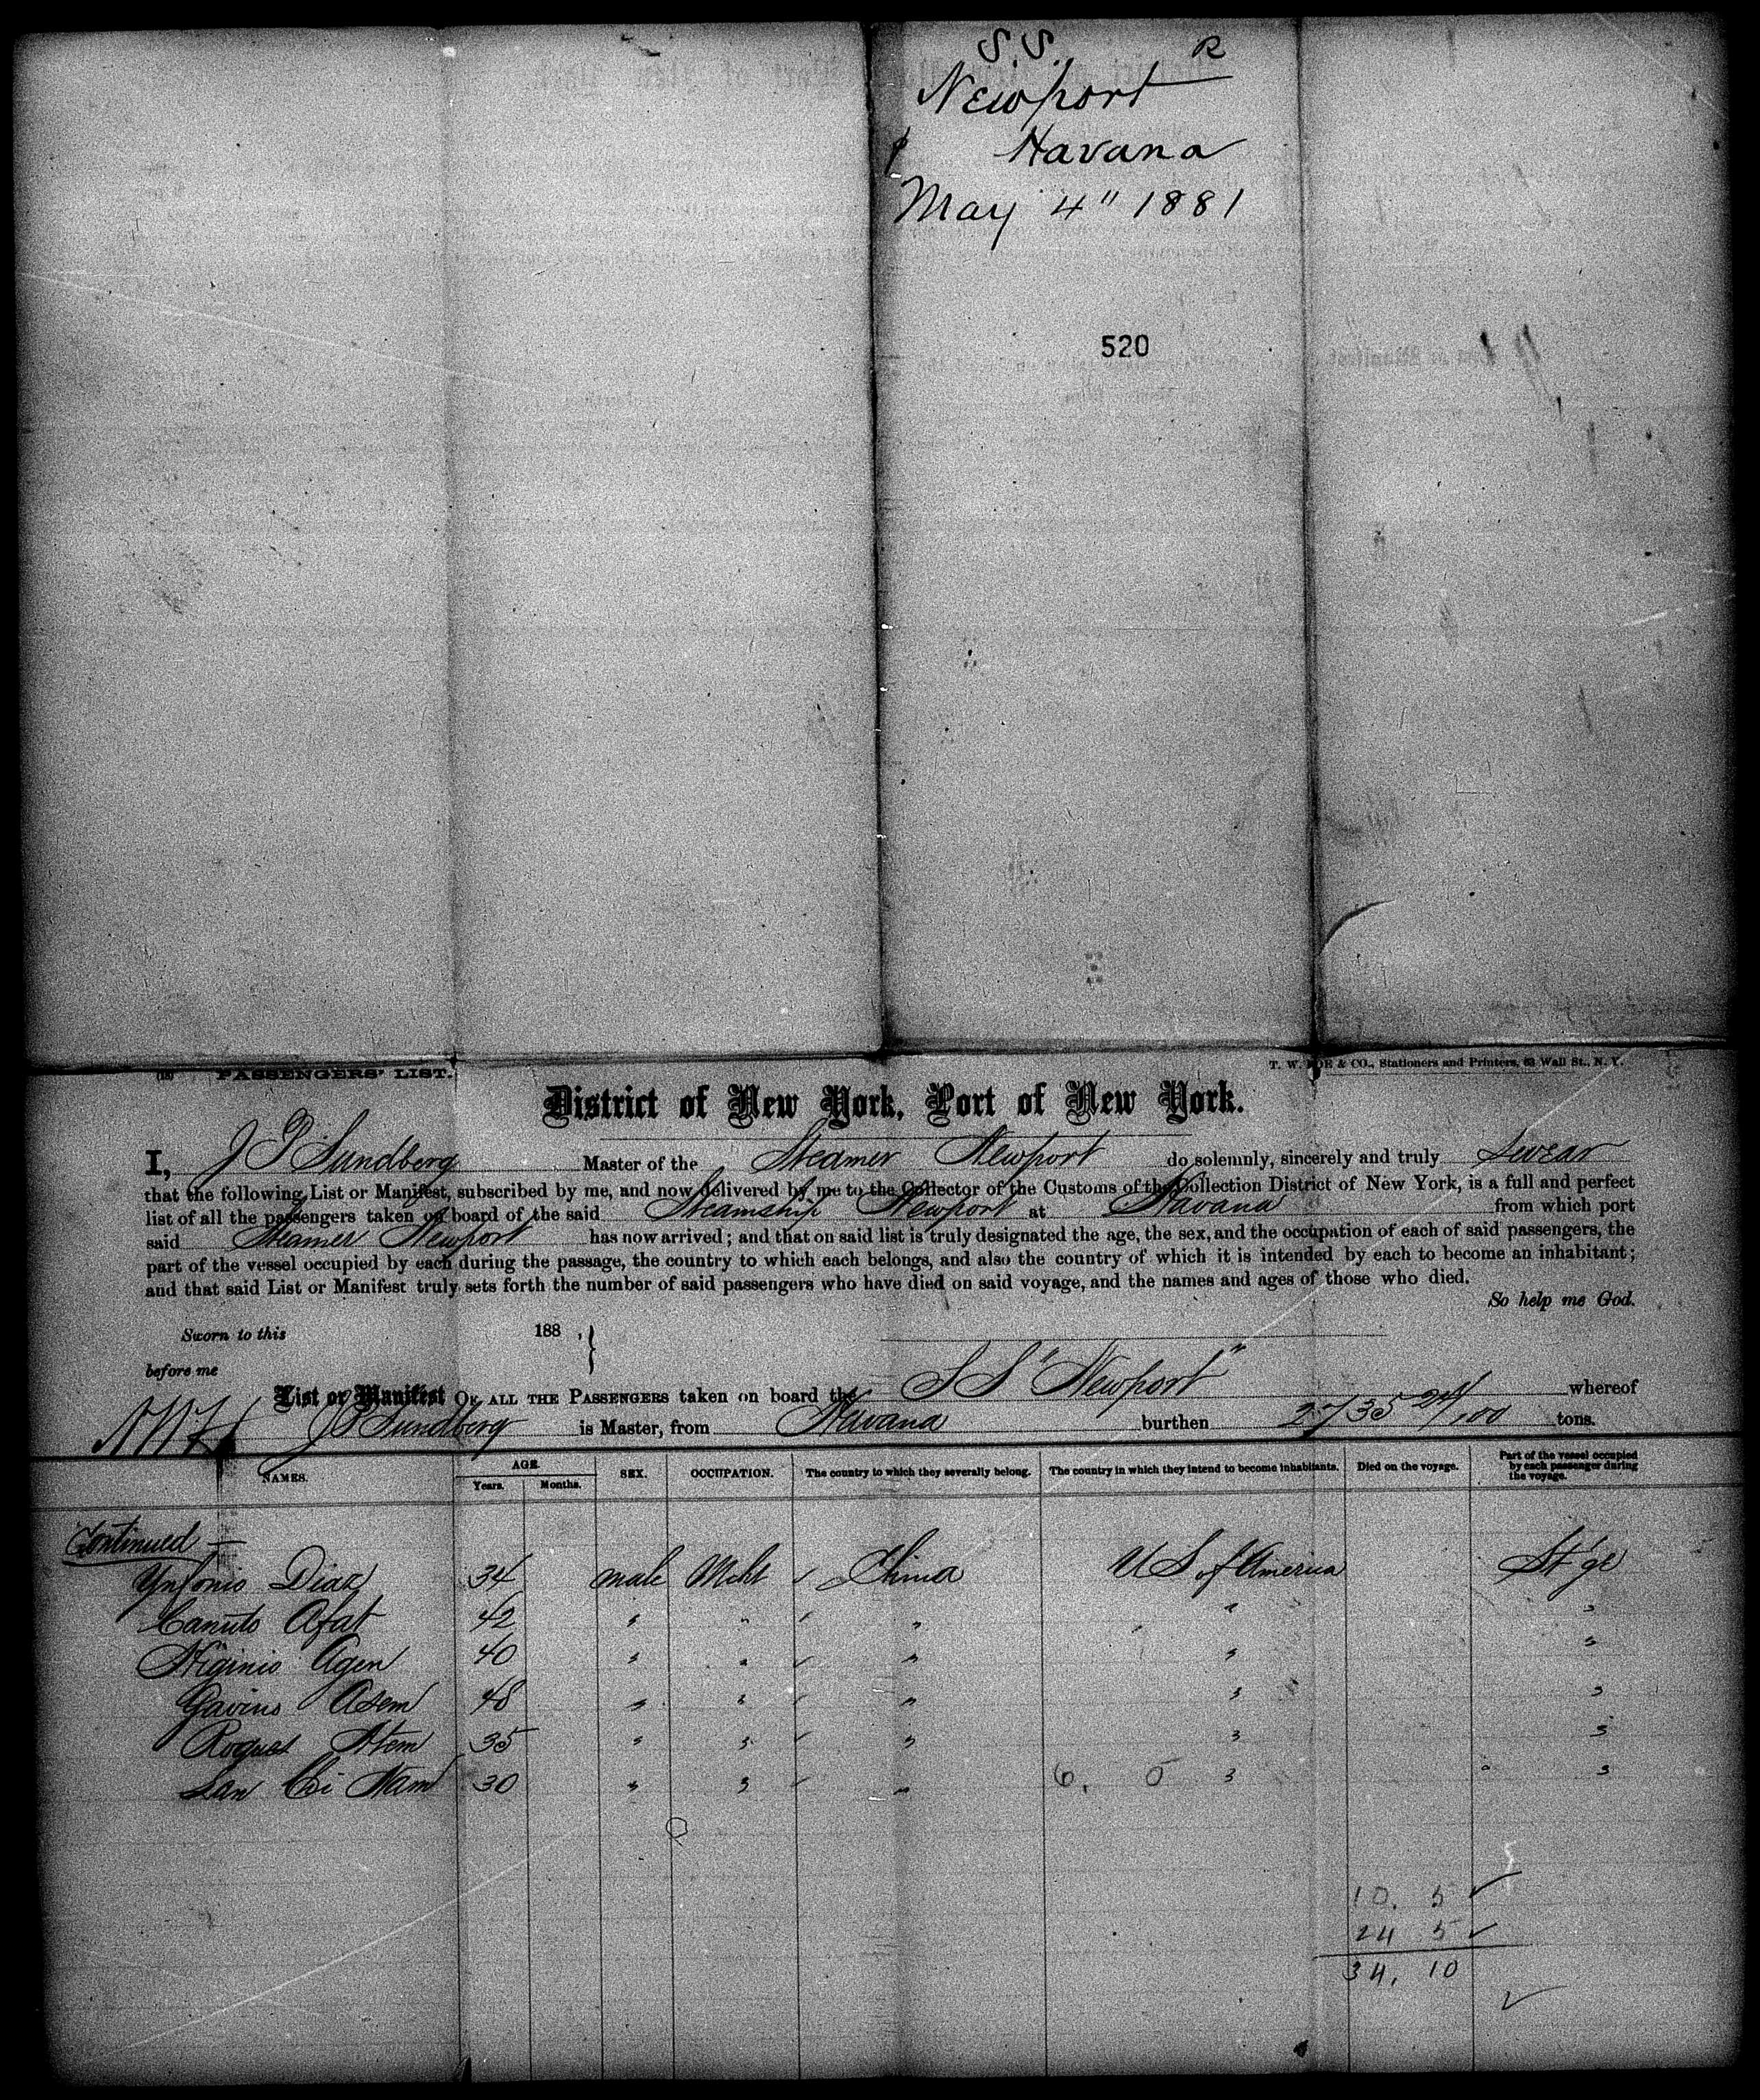 S.S. R
Newport
Havana
May 4" 1881
520
(18) PASSENGERS' LIST.
T. W. & CO., Stationers and Printers, 63 Wall St., N. Y.
District of New York, Port of New York.
I, J P Sundberg Master of the Steamer Newport do solemnly, sincerely and truly Swear
that the following List or Manifest, subscribed by me, and now delivered by me to the Collector of the Customs of the Collection District of New York, is a full and perfect
list of all the passengers taken on board of the said Steamship Newport at Havana from which port
said Steamer Newport has now arrived; and that on said list is truly designated the age, the sex, and the occupation of each of said passengers, the
part of the vessel occupied by each during the passage, the country to which each belongs, and also the country of which it is intended by each to become an inhabitant;
and that said List or Manifest truly sets forth the number of said passengers who have died on said voyage, and the names and ages of those who died.
So help me God.
Sworn to this 188 , }
before me
List or Manifest OF ALL THE PASSENGERS taken on board the S S "Newport" whereof
J P Sundberg is Master, from Havana burthen 2735 24/100 tons.
NAMES. AGE Years. Months. SEX. OCCUPATION. The country to which they severally belong. The country in which they intend to become inhabitants. Died on the voyage. Part of the vessel occupied by each passenger during the voyage.
Continued —
Antonio Diaz 34 male Mcht ✓ China U S of America St'ge
Canuto Afat 42 " " ✓ " " "
Higinio Agen 40 " " ✓ " " "
Gavino Asem 48 " " ✓ " " "
Roques Atem 35 " " ✓ " " "
San Chi Nam 30 " " ✓ " 6. 0 " "
10. 5 ✓
24 5 ✓
34. 10
✓